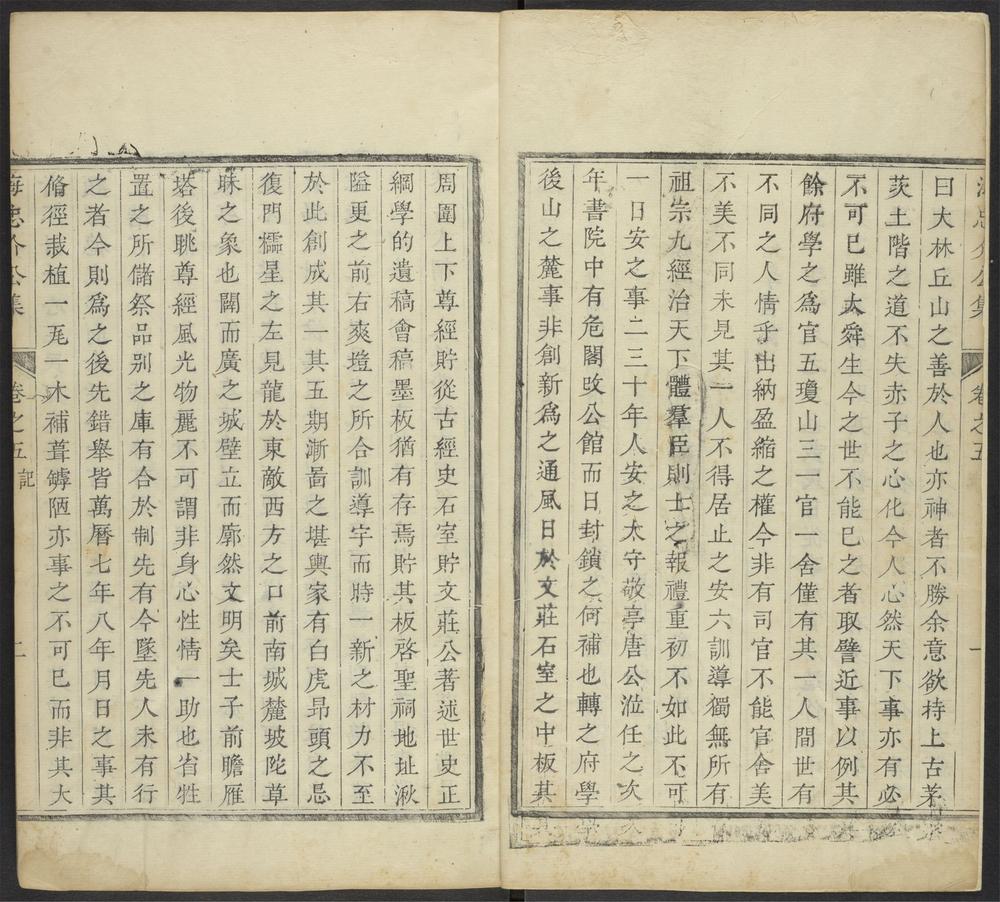 曰大林丘山之善於人也亦神者不勝余意欲持上古茅
茨土階之道不失赤子之心化今人心然天下事亦有必
不可已雖大舜生今之世不能已之者取譬近事以例其
餘府學之爲官五瓊山三一官一舍僅有其一人間世有
不同之人情乎出納盈縮之權今非有司官不能官舍美
不美不同未見其一人不得居止之安六訓導獨無所有
祖宗九經治天下體羣臣則士之報禮重初不如此不可
一日安之事二三十年人安之太守敬亭唐公涖任之次
年書院中有危閣改公館而日封鎖之何補也轉之府學
後山之麓事非創新爲之通風日於文莊石室之中板其
周圍上下尊經貯從古經史石室貯文莊公著述世史正
綱學的遺稿會稿墨板猶有存焉貯其板啓聖祠地址湫
隘更之前右爽塏之所合訓導宇而時一新之材力不至
於此創成其一其五期漸啚之堪輿家有白虎昻頭之忌
復門櫺星之左見龍於東敵西方之口前南城麓坡陀草
昧之象也闢而廣之城壁立而廓然文明矣士子前瞻雁
塔後眺尊經風光物麗不可謂非身心性情一助也省牲
置之所儲祭品别之庫有合於制先有今墜先人未有行
之者今則爲之後先錯舉皆萬曆七年八年月日之事其
脩徑栽植一瓦一木補葺罅陋亦事之不可已而非其大
海忠介公集 卷之五 記 二